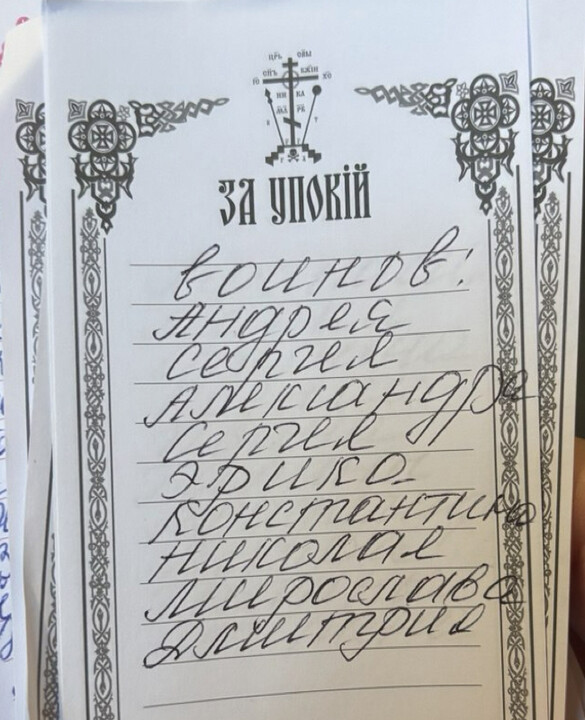 ЗА УПОКІЙ
воинов:
Андрея
Сергея
Александра
Сергея
Эрика
Константина
Николая
Мирослава
Дмитрия